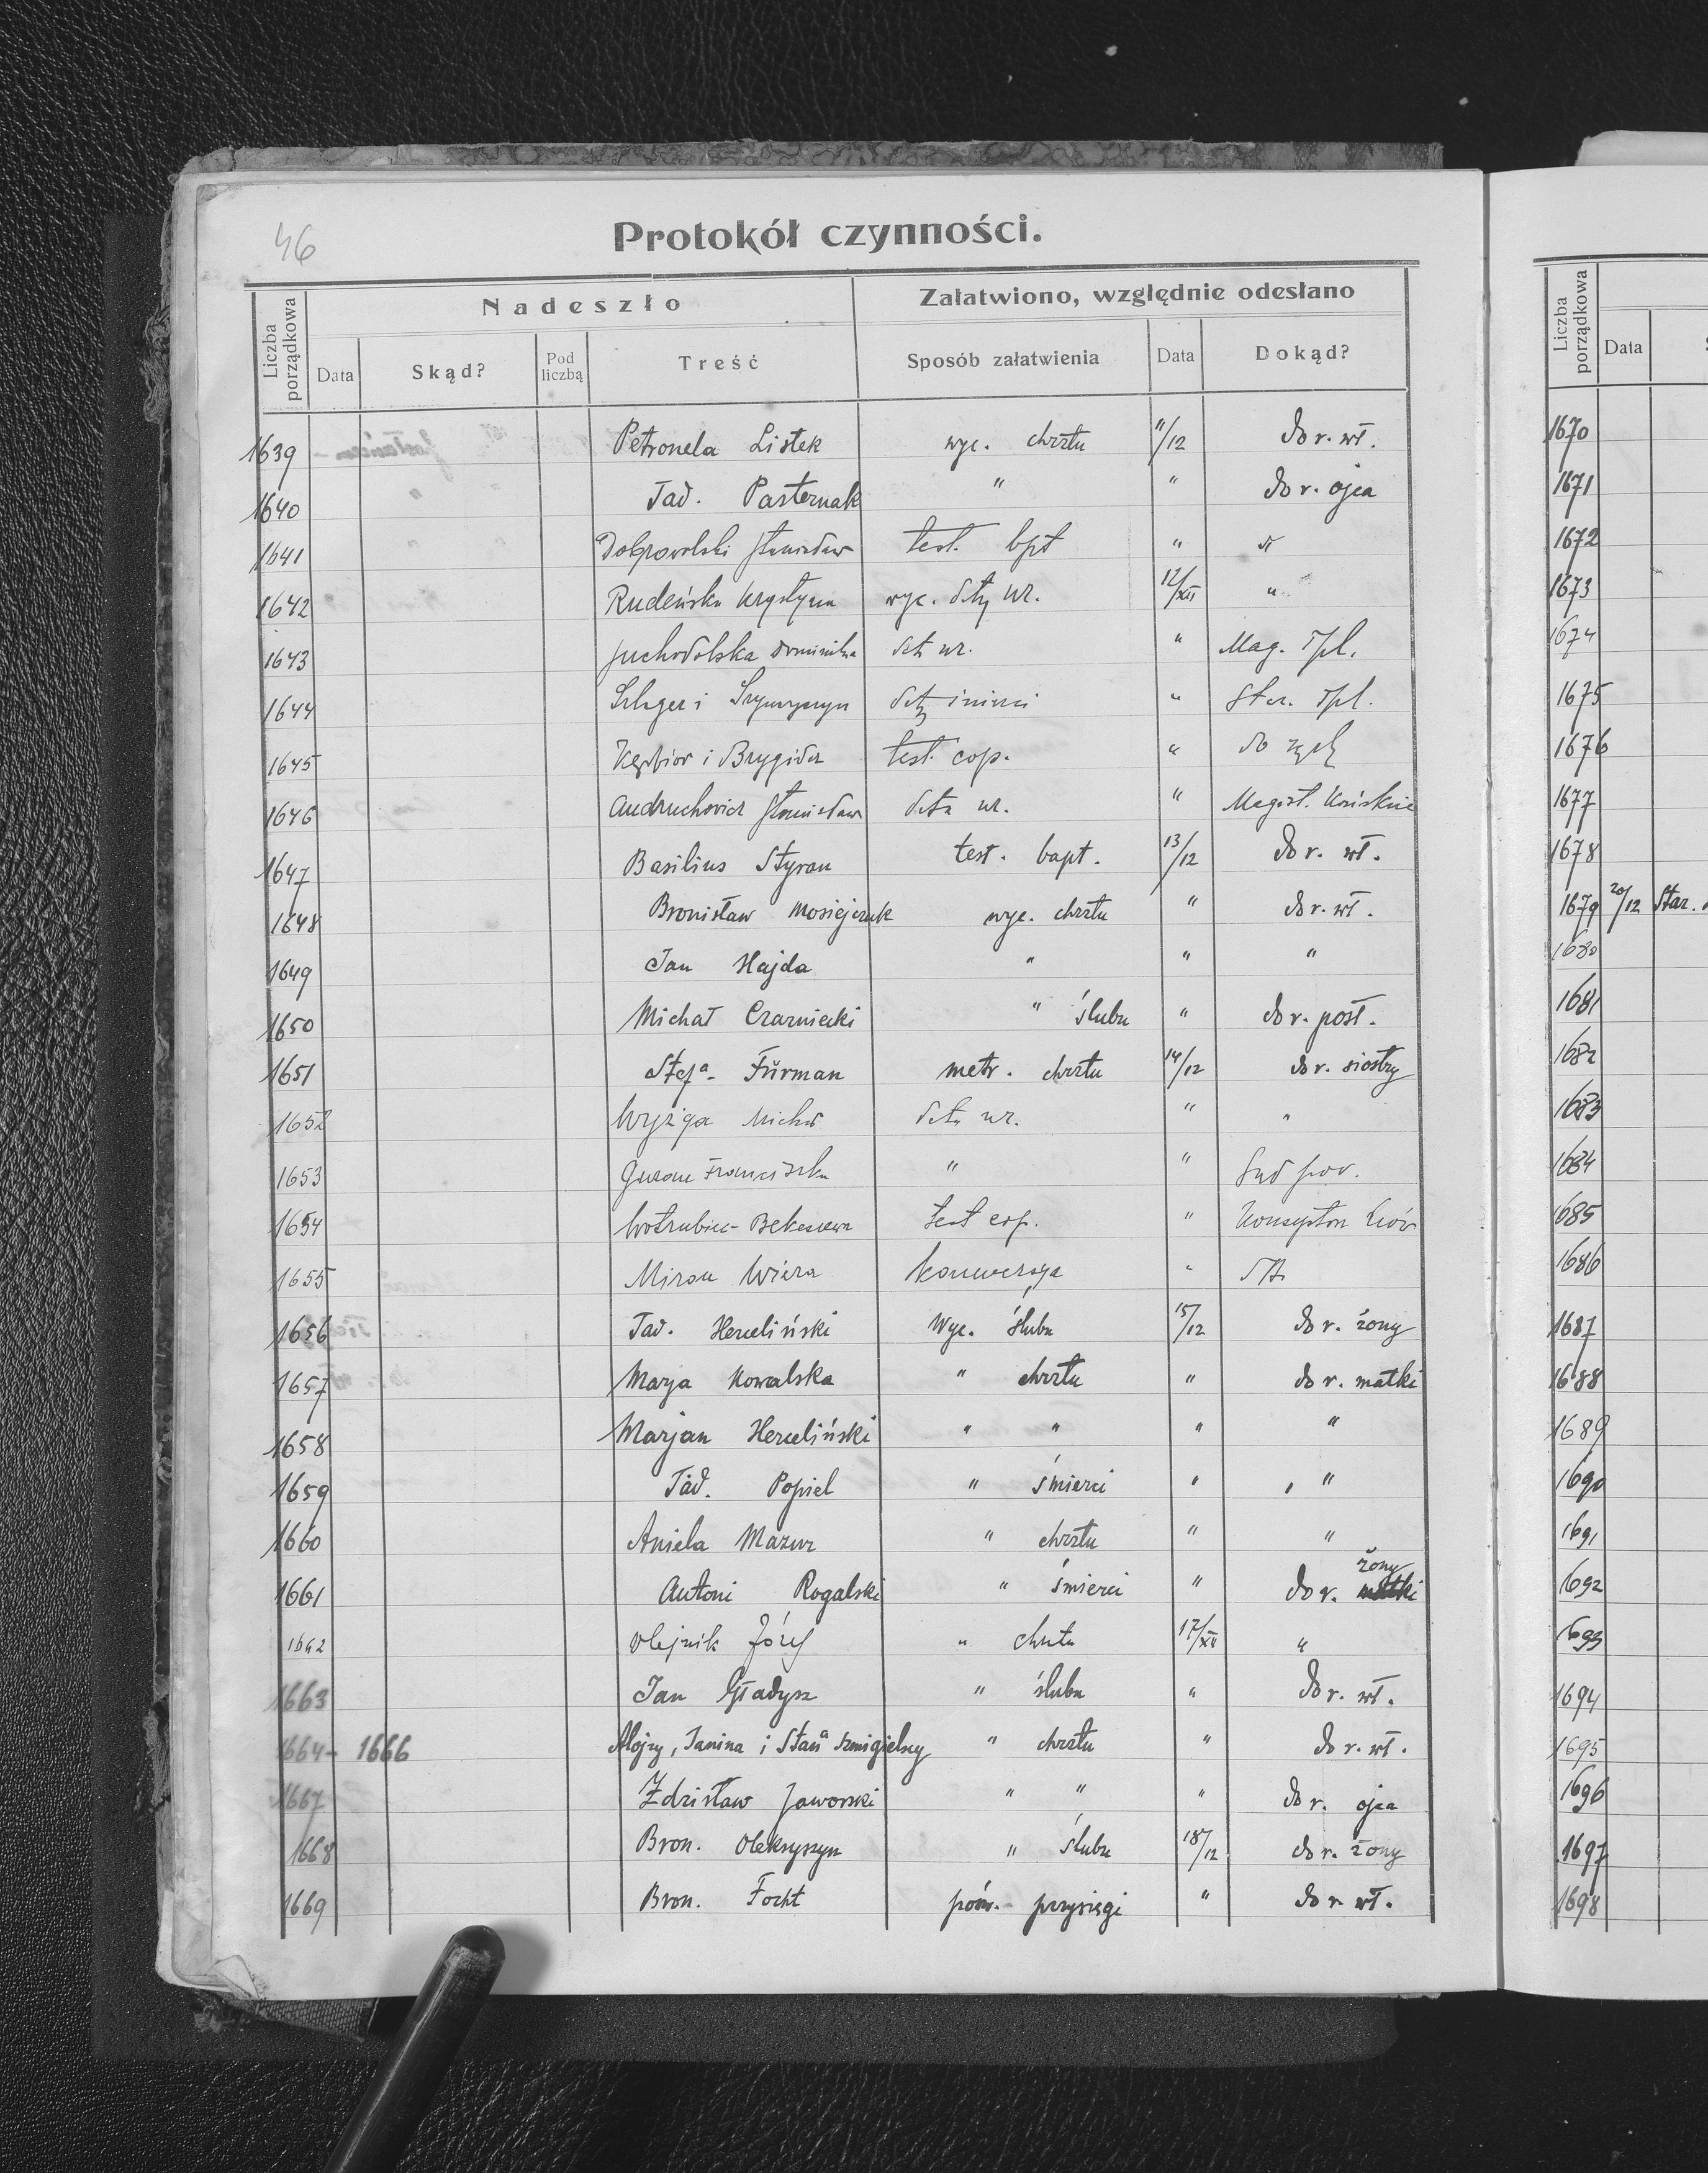 46
Protokół czynności.
Liczba porządkowa
Nadeszło
Załatwiono, względnie odesłano
Data Skąd? Pod liczbą Treść Sposób załatwienia Data Dokąd?
1639 Petronela Listek wyc. chrztu 11/12 do r. wł.
1640 Tad. Pasternak " " do r. ojca
1641 Dobrowolski Stanisław test. bpt "
1642 Rudeńska Krystyna wyc. daty ur. 12/XII "
1643 Suchodolska Dominika data ur. " Mag. Tpl.
1644 i Szymczyszyn daty śmierci " Star. Tpl.
1645 i Brygida test. cop. " do
1646 Andruchowicz Stanisław data ur. " Magist.
1647 Basilius Styran test. bapt. 13/12 do r. wł.
1648 Bronisław Mosiejczuk wyc. chrztu " do r. wł.
1649 Jan Hajda " " "
1650 Michał Czarniecki " ślubu " do r. post.
1651 Stefa Fürman metr. chrztu 14/12 do r. siostry
1652 Wyżga Michał data ur. " "
1653 Guran Franciszka " " Sąd pow.
1654 test cop. " Lwów
1655 Miron Wiera konwersja "
1656 Tad. Herceliński Wyc. ślubu 15/12 do r. żony
1657 Marja Kowalska " chrztu " do r. matki
1658 Marjan Herceliński " " " "
1659 Tad. Popiel " śmierci " , "
1660 Aniela Mazur " chrztu " "
1661 Antoni Rogalski " śmierci " do r. żony
1662 Olejnik Józef " chrztu 17/XII "
1663 Jan Gładysz " ślubu " do r. wł.
1664 - 1666 Alojzy, Janina i Stan<sup>a</sup> Szmigielscy " chrztu " do r. wł.
1667 Zdzisław Jaworski " " " do r. ojca
1668 Bron. Oleksyszyn " ślubu 18/12 do r. żony
1669 Bron. Focht pośw. przysięgi " do r. wł.
Liczba porządkowa
Data
1670
1671
1672
1673
1674
1675
1676
1677
1678
1679 20/12 Star.
1680
1681
1682
1683
1684
1685
1686
1687
1688
1689
1690
1691
1692
1693
1694
1695
1696
1697
1698